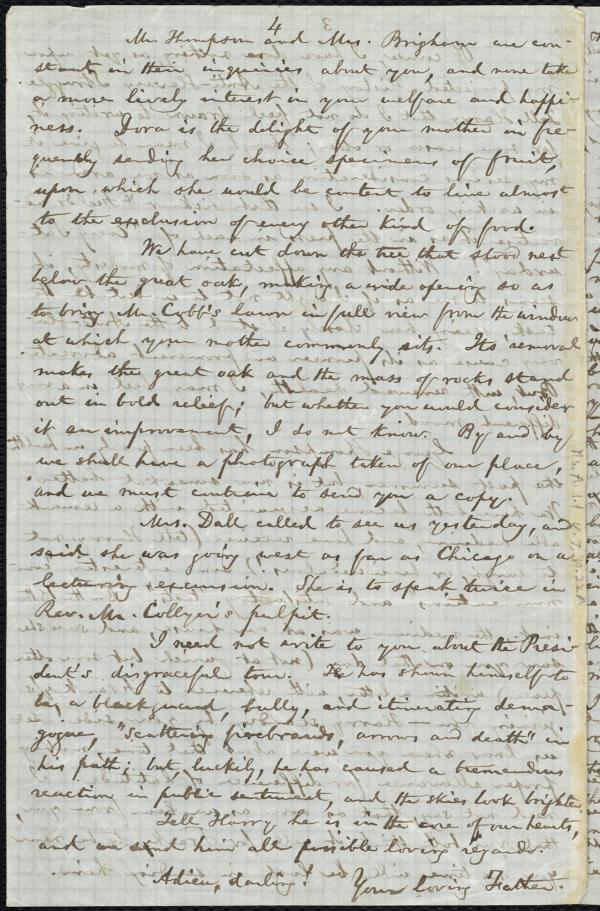 4
Mr. Thompson and Mrs. Brigham are con-
stant in their inquiries about you, and none take
a more lively interest in your welfare and happi-
ness. Dora is the delight of your mother in fre-
quently sending her choice specimens of fruit,
upon which she would be content to live almost
to the exclusion of every other kind of food.
We have cut down the tree that stood next
below the great oak, making a wide opening so as
to bring Mr. Cobb's lawn in full view from the window
at which your mother commonly sits. Its removal
makes the great oak and the mass of rocks stand
out in bold relief; but whether you would consider
it an improvement, I do not know. By and by
we shall have a photograph taken of our place,
and we must contrive to send you a copy.
Mrs. Dall called to see us yesterday, and
said she was going west as far as Chicago on a
lecturing excursion. She is to speak twice in
Rev. Mr. Collyer's pulpit.
I need not write to you about the Presi-
dent's disgraceful tour. He has shown himself to
be a blackguard, bully, and itinerating dema-
gogue, "scattering firebrands, arrows and death" in
his path; but, luckily, he has caused a tremendous
reaction in public sentiment, and the skies look brighter.
Tell Harry he is in the core of our hearts,
and we send him all possible loving regards.
Adieu, darling! Your loving Father.